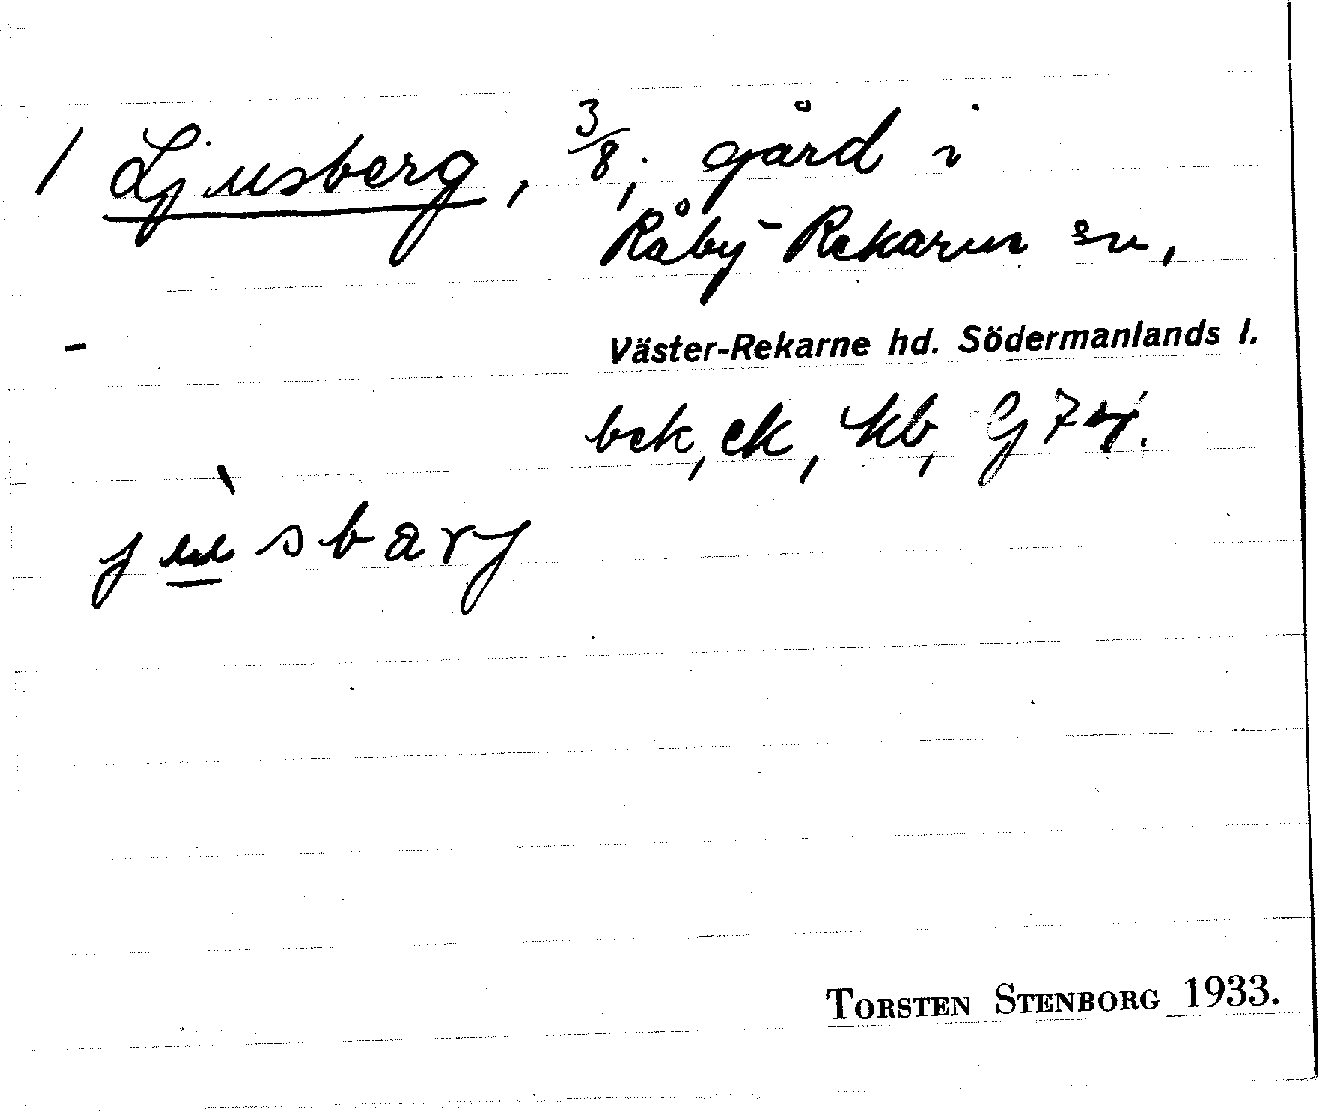 1 Ljusberg, 3/8, gård i
Råby-Rekarne sn,
Väster-Rekarne hd. Södermanlands l.
bek, ek, kb, G 74.
jusbarj
TORSTEN STENBORG 1933.